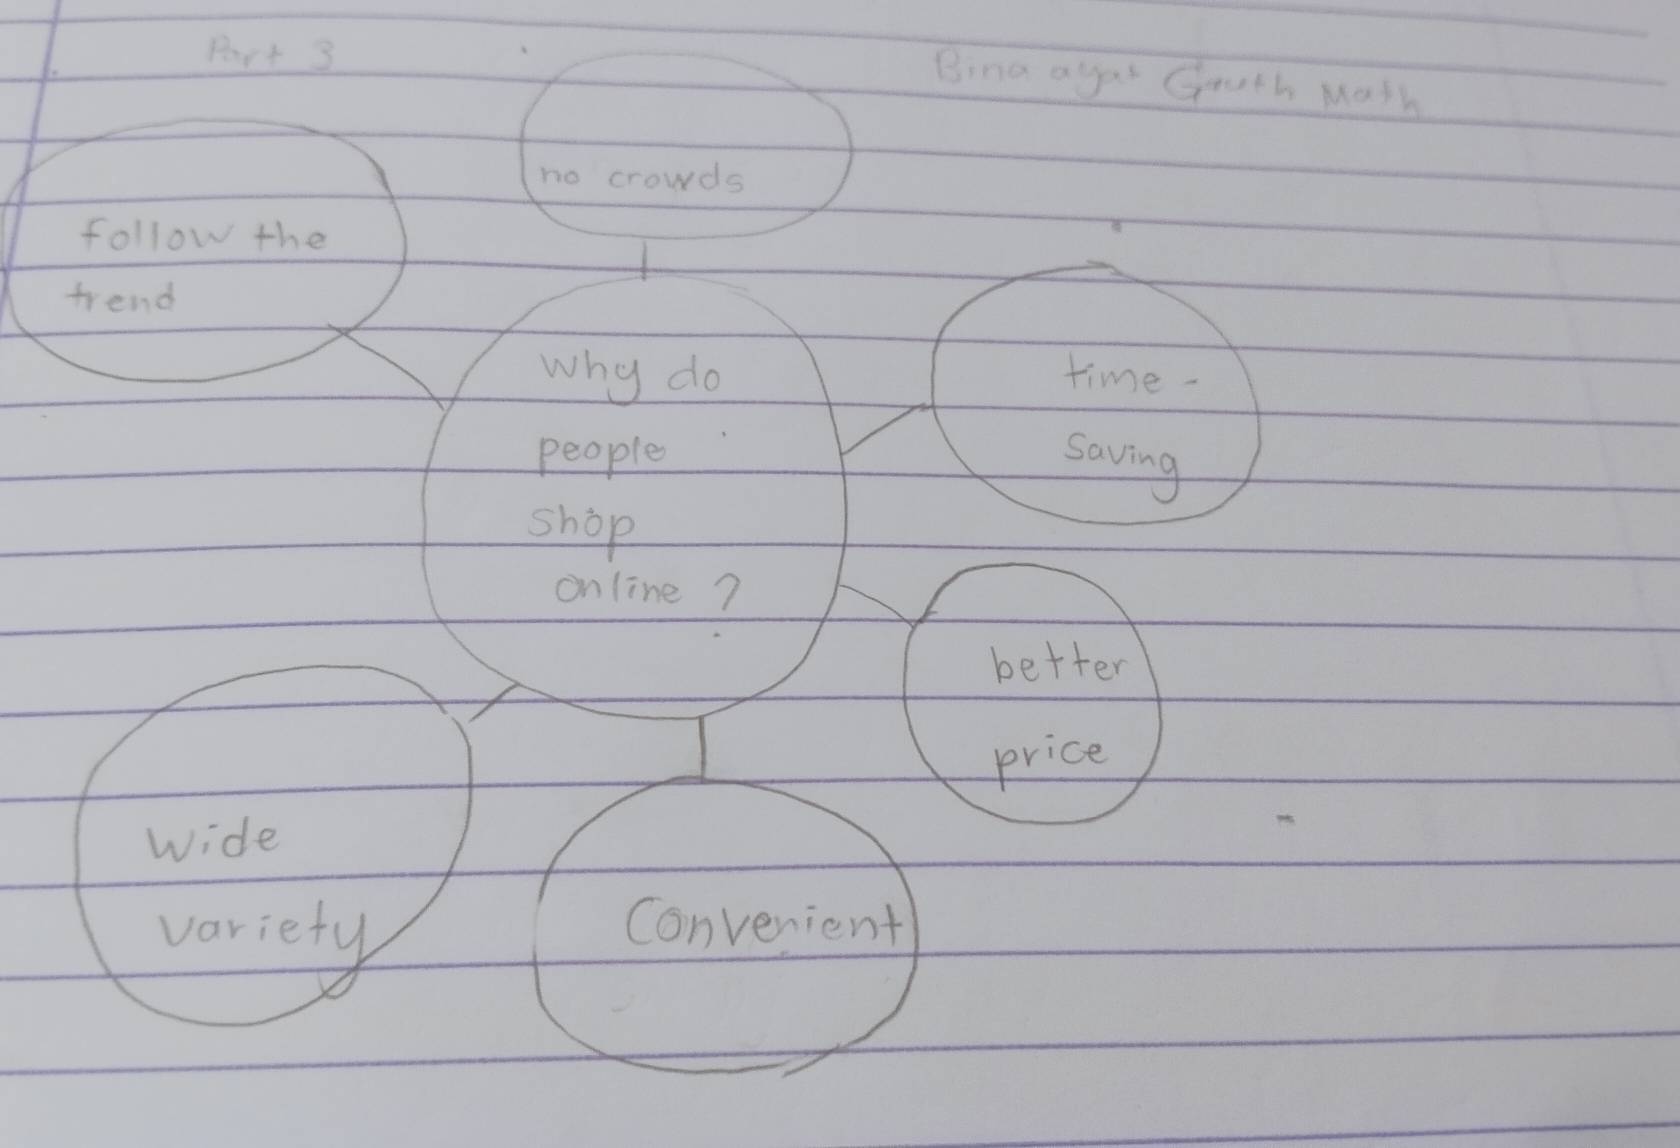 Part 3
Bina ayat Gauth Math
no crowds
follow the
trend
Why do
people
shop
online ?
time -
Saving
better
price
Wide
variety
Convenient